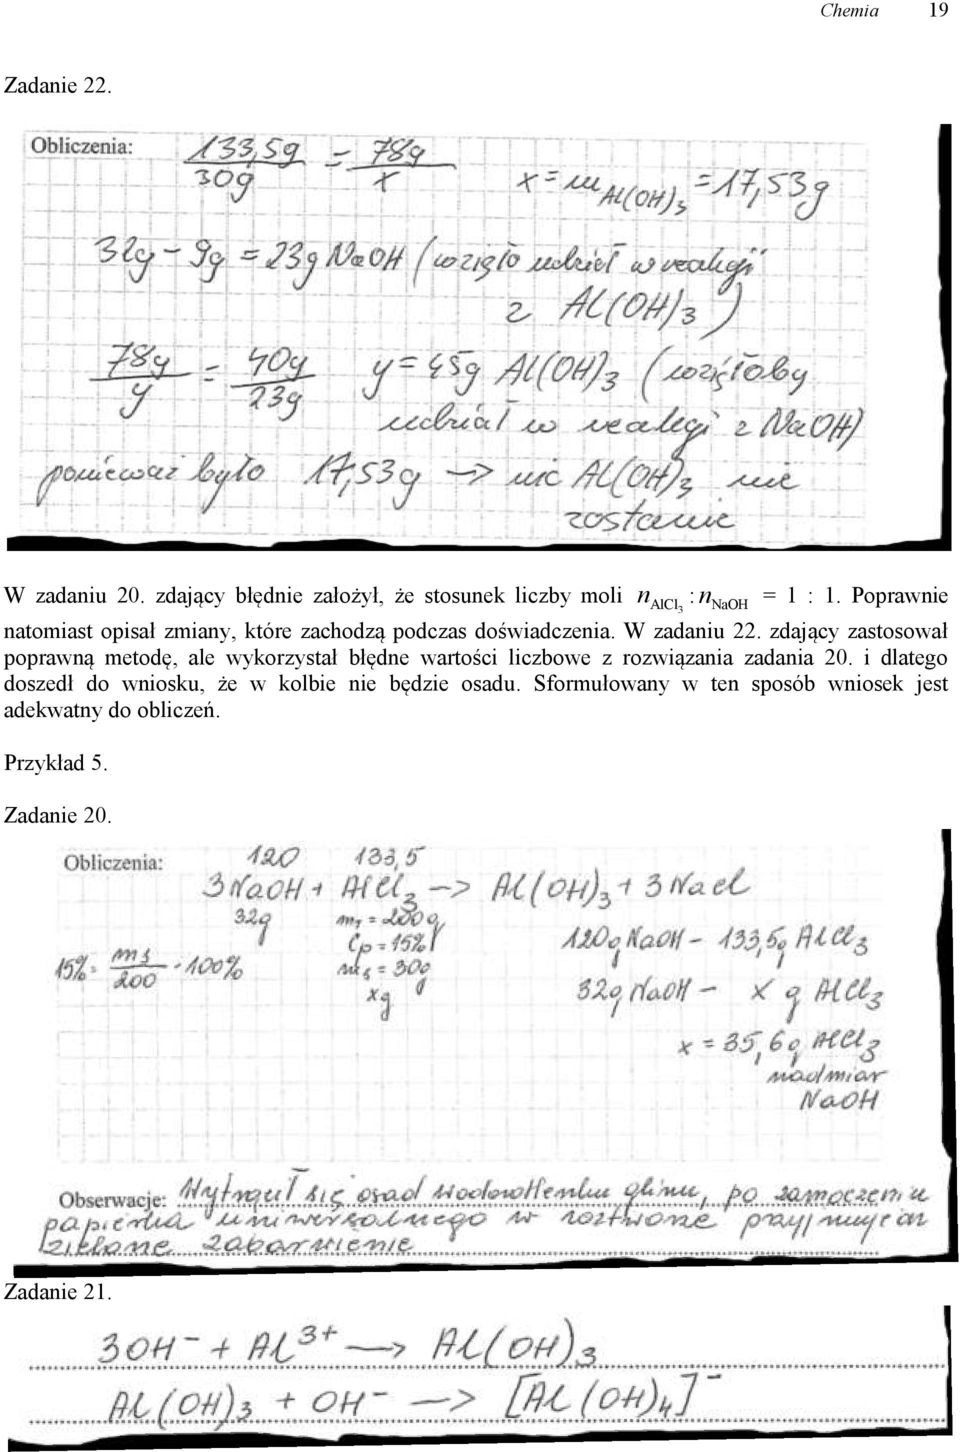 Chemia 19
Zadanie 22.
Obliczenia: 133,5g/30g = 78g/x x = m Al(OH)₃ = 17,53g
32g - 9g = 23g NaOH (wzięło udział w reakcji
z Al(OH)₃)
78g/y = 40g/23g y = 45g Al(OH)₃ (wzięłoby
udział w reakcji z NaOH)
ponieważ było 17,53g → nic Al(OH)₃ nie
zostanie
W zadaniu 20. zdający błędnie założył, że stosunek liczby moli n AlCl₃ : n NaOH = 1 : 1. Poprawnie
natomiast opisał zmiany, które zachodzą podczas doświadczenia. W zadaniu 22. zdający zastosował
poprawną metodę, ale wykorzystał błędne wartości liczbowe z rozwiązania zadania 20. i dlatego
doszedł do wniosku, że w kolbie nie będzie osadu. Sformułowany w ten sposób wniosek jest
adekwatny do obliczeń.
Przykład 5.
Zadanie 20.
Obliczenia: 120 133,5
3NaOH + AlCl₃ → Al(OH)₃ + 3NaCl
32g m₁ = 200g
Cp = 15% 120g NaOH - 133,5g AlCl₃
15% = ms/200 · 100% ms = 30g
xg 32g NaOH - x g AlCl₃
x = 35,6g AlCl₃
nadmiar
NaOH
Obserwacje: Wytrącił się osad wodorotlenku glinu, po zamoczeniu
papierka uniwersalnego w roztworze przyjmuje on
zielone zabarwienie
Zadanie 21.
3OH⁻ + Al³⁺ → Al(OH)₃
Al(OH)₃ + OH⁻ → [Al(OH)₄]⁻